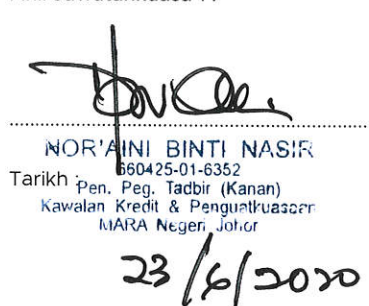 NOR'AINI BINTI NASIR
660425-01-6352
Tarikh :
Pen. Peg. Tadbir (Kanan)
Kawalan Kredit & Penguatkuasaan
MARA Negeri Johor
23/6/2020